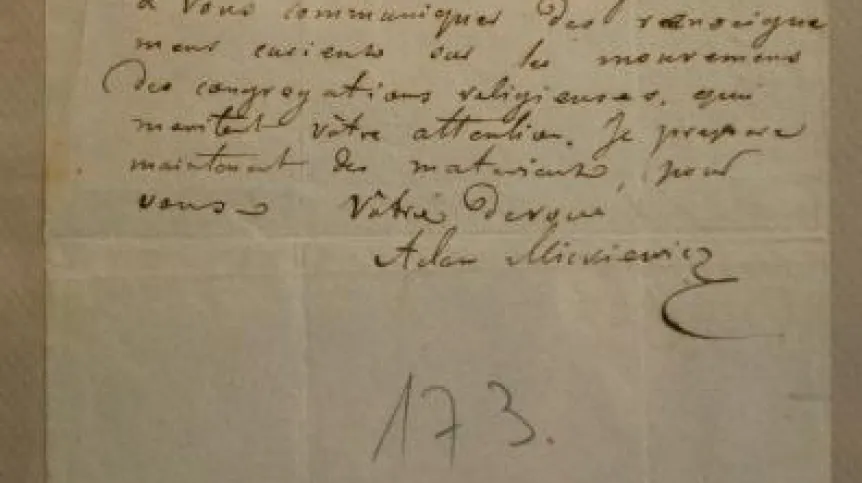 à vous communiquer des renseigne
mens curieux sur les mouvemens
des congregations religieuses, qui
meritent vôtre attention. Je prepare
maintenant des materieux, pour
vous. Vôtre devoué
Adam Mickiewicz
173.